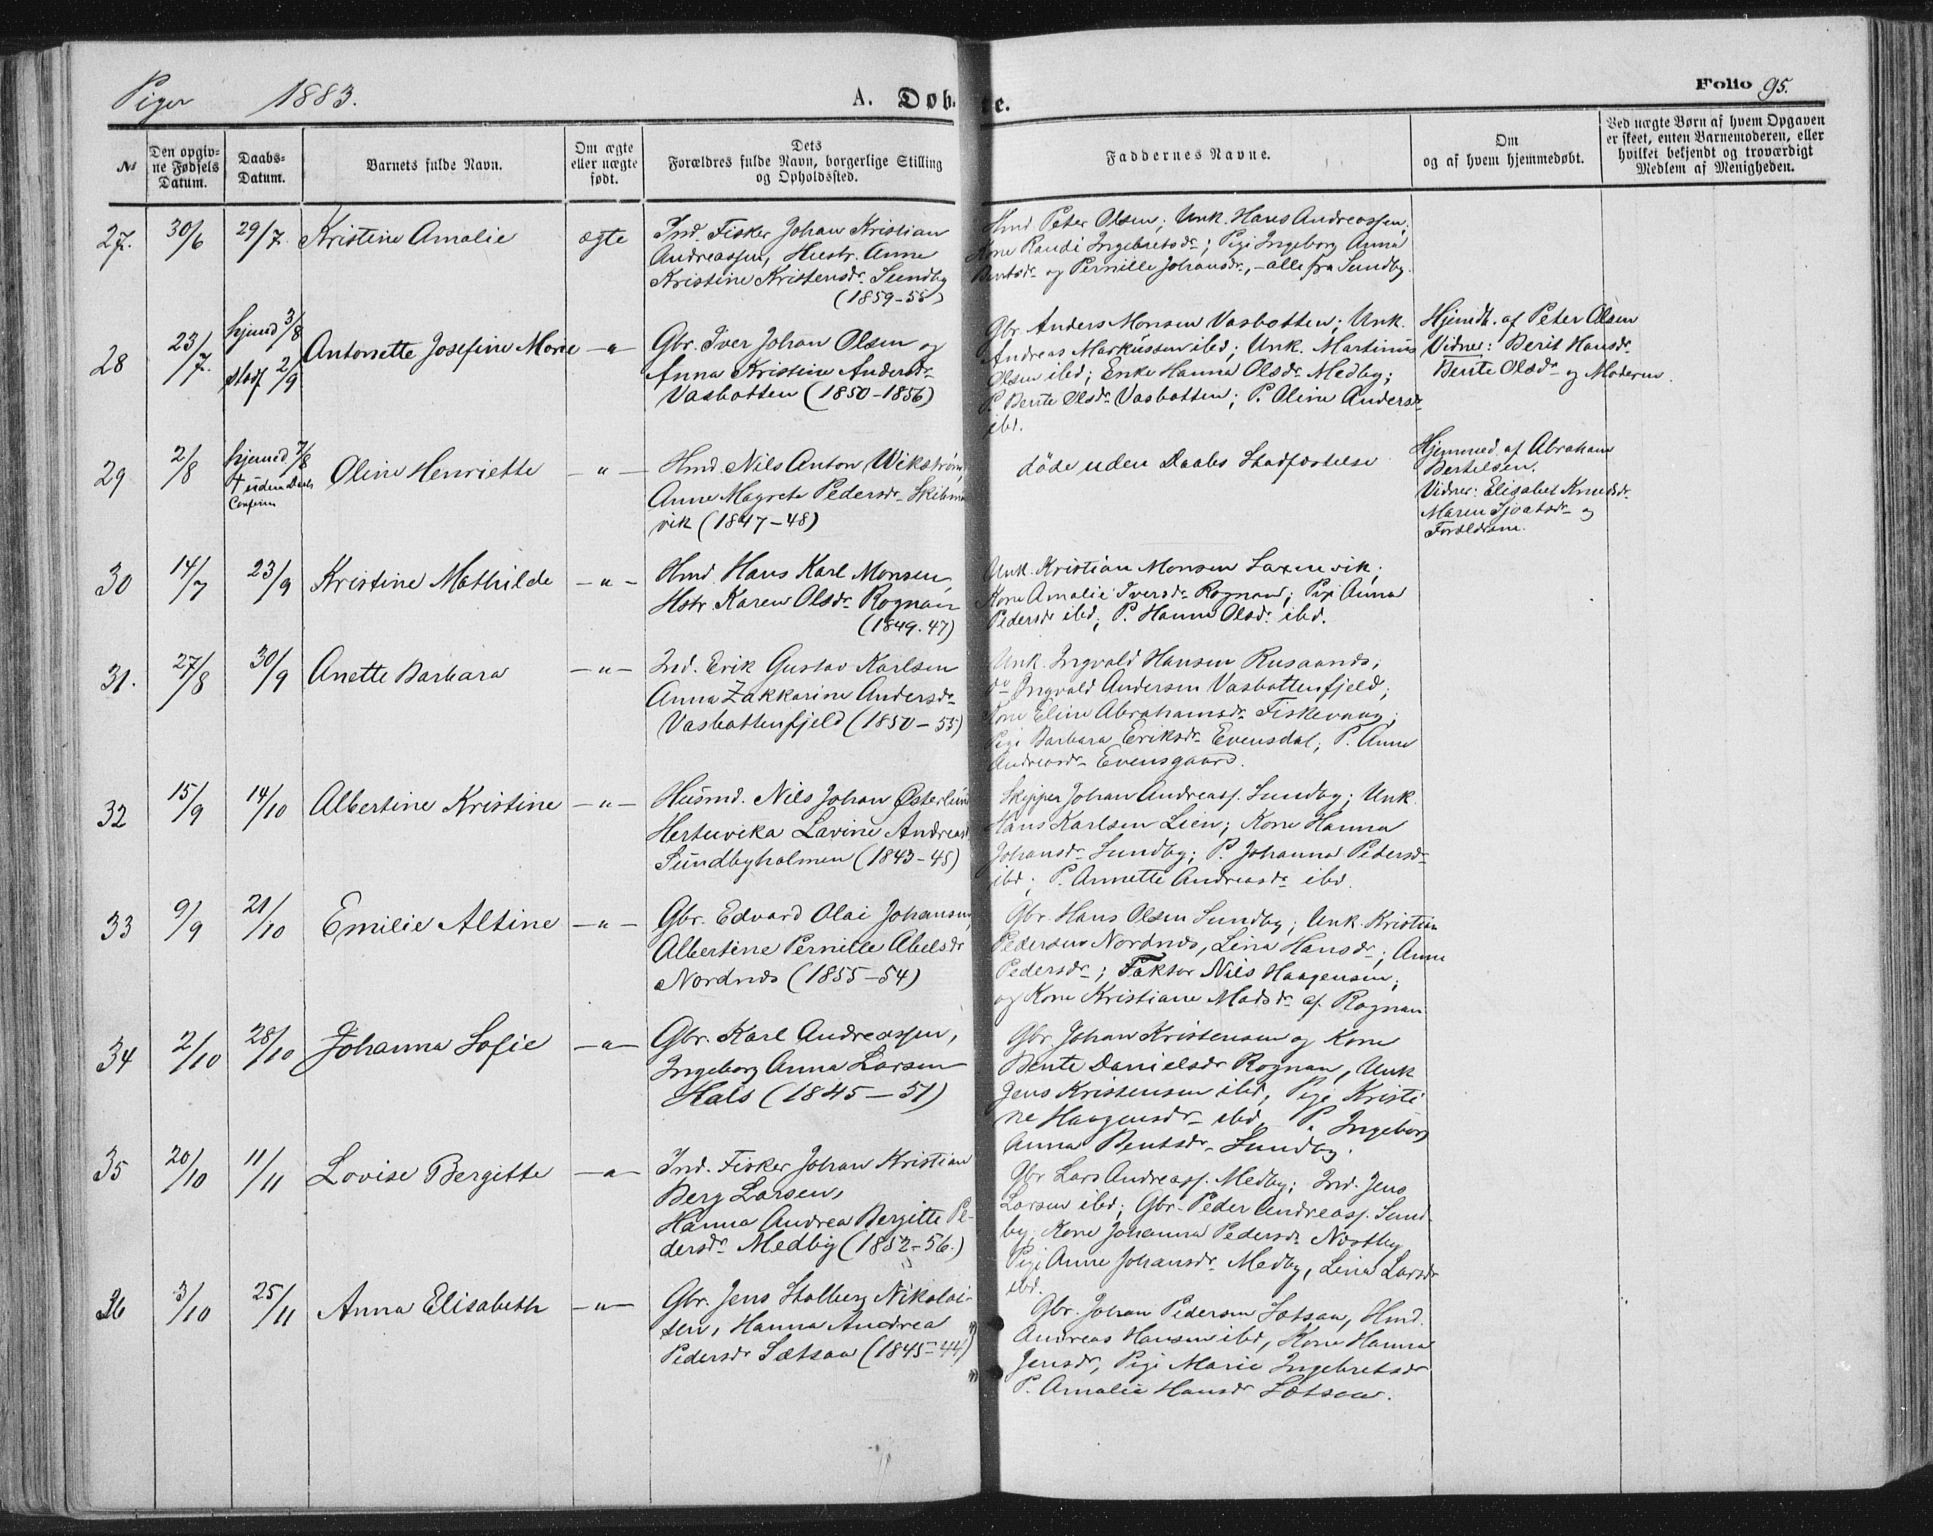 Piger 1883. A. Døbte. Folio 95.
№
Den opgivne Fødsels Datum.
Daabs-Datum.
Barnets fulde Navn.
Om ægte eller uægte født.
Dets Forældres fulde Navn, borgerlige Stilling og Opholdssted.
Faddernes Navne.
Om og af hvem hjemmedøbt.
Ved uægte Børn af hvem Opgaven er skeet, enten Barnemoderen, eller hvilket bekjendt og troværdigt Medlem af Menigheden.
27. 30/6 29/7 Kristine Amalie ægte
Ind. Fisker Johan Kristian
Andreassen, Hustr. Anne
Kristine Kristensdr. Sundby
(1859-55)
Hmd Peter Olsen; Unk. Hans Andreassen;
Kone Randi Ingebretsdr; Pigi Ingeborg Anna
Bentsdr og Pernille Johansdr, - alle fra Sundby.
28 23/7. hjemd 3/8 stadf 2/9 Antonette Josefine Marie —"—
Gbr. Iver Johan Olsen og
Anna Kristine Andersdr
Vasbotten (1850-1856)
Gbr. Anders Monsen Vasbotten; Unk.
Andreas Markussen ibd; Unk. Martinus
Olsen ibd; Enke Hanna Olsdr Medby;
P. Bente Olsdr Vasbotten; P. Oline Andersdr
ibd.
Hjemdt. af Peter Olsen
Vidner: Berit Hansdr
Bente Olsdr og Moderen.
29 2/8 hjemd 7/8 † uden Daabs Confirm Oline Henriette —"—
Hmd. Nils Anton Wikstrøm,
Anne Magrete Pedersdr Skibmo
vik (1847-48)
døde uden Daabs Stadfæstelse
Hjemmed. af Abraham
Bertelsen.
Vidner: Elisabet Knudsdr
Maren Sjvatsdr og
Forældrene.
30 14/7 23/9 Kristine Mathilde —"—
Hmd. Hans Karl Monsen,
Hstr Karen Olsdr Rognan
(1849.47)
Unk. Kristian Monsen Saxenvik;
Kone Amalie Iversdr Rognan; Pigi Anna
Pedersdr ibd; P. Hanna Olsdr ibd.
31. 27/8 30/9 Anette Barbara —"—
Ind. Erik Gustav Karlsen
Anna Zakkarine Andersdr
Vasbottenfjeld (1850-55)
Unk. Ingvald Hansen Rusaanes,
do Ingvald Andersen Vasbottenfjeld,
Kone Eline Abrahamsdr Fiskevaag;
Pigi Barbara Eriksdr Evensdal; P. Anne
Andreasdr Evensgaard.
32 15/9 14/10 Albertine Kristine —"—
Husmd. Nils Johan Østerlund
Hertevika Lavine Andreasd
Sundbyholmen (1843-45)
Skipper Johan Andreass. Sundby; Unk.
Hans Karlsen Lien; Kone Hanna
Johansdr Sundby; P. Johanna Pedersdr
ibd; P. Annette Andreasdr ibd.
33 9/9 21/10 Emilie Altine —"—
Gbr. Edvard Olai Johansen,
Albertine Pernille Abelsdr
Nordnæs (1855-54)
Gbr. Hans Olsen Sundby; Unk. Kristian
Pedersen Nordnæs, Lina Hansdr; Anne
Pedersdr; Faktor Nils Haagensen;
og Kone Kristiane Madsdr af Rognan
34 2/10 28/10 Johanna Sofie —"—
Gbr. Karl Andreassen,
Ingeborg Anna Larsen
Hals (1845-51)
Gbr. Johan Kristensen og Kone
Bente Danielsdr Rognan, Unk
Jens Kristensen ibd, Pigi Kristi
ne Haagensdr ibd, P. Ingeborg
Anna Bentsdr Sundby.
35 20/10 11/11 Lovise Bergitte —"—
Ind. Fisker Johan Kristian
Berg Larsen,
Hanna Andrea Bergitte Pe-
dersdr Medby (1852-56.)
Gbr Lars Andreass. Medby; Ind. Jens
Larsen ibd; Gbr. Peder Andreass. Sund-
by, Kone Johanna Pedersdr Nestby
Pigi Anne Johansdr Medby, Lina Larsdr
ibd.
36 3/10 25/11 Anna Elisabeth —"—
Gbr. Jens Stolberg Nikolai-
sen, Hanna Andrea
Pedersdr Sætsaa (1845-44)
Gbr. Johan Pedersen Sætsaa, Hmd.
Andreas Hansen ibd, Kone Hanna
Jensdr, Pigi Marie Ingebretsdr
P. Amalie Hansdr Sætsaa.